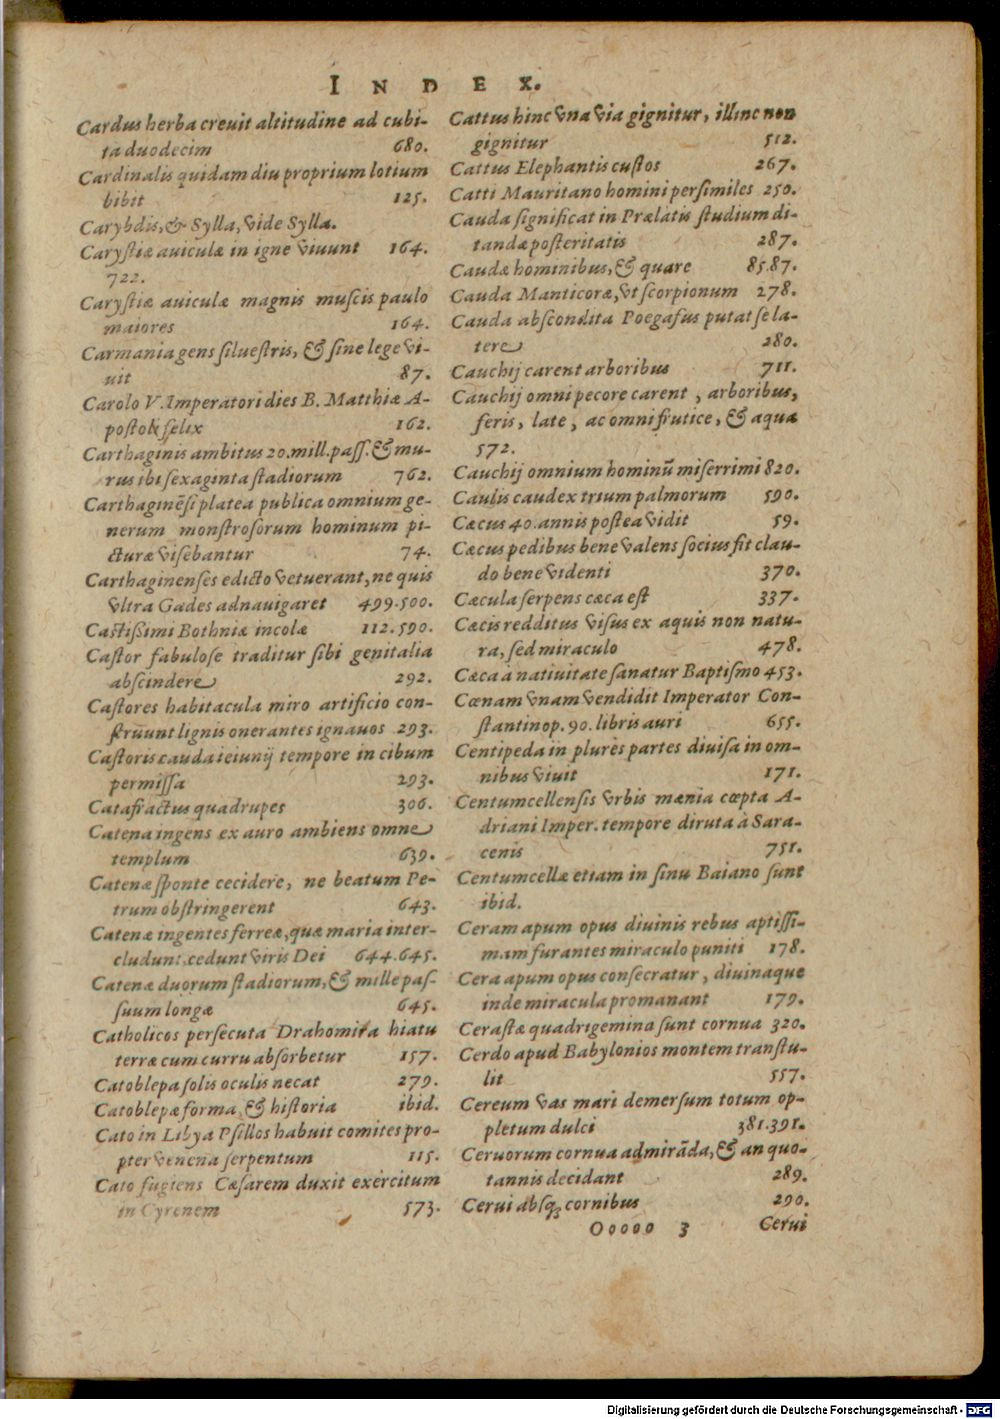 INDEX.
Cardus herba creuit altitudine ad cubi-
ta duodecim 680.
Cardinalis quidam diu proprium lotium
bibit 125.
Carybdis, & Sylla, vide Sylla.
Carystiæ auiculæ in igne viuunt 164.
722.
Carystiæ auiculæ magnis muscis paulo
maiores 164.
Carmania gens siluestris, & sine lege vi-
uit 87.
Carolo V. Imperatori dies B. Matthiæ A-
postoli felix 162.
Carthaginis ambitus 20. mill. pass. & mu-
rus ibi sexaginta stadiorum 762.
Carthaginẽsi platea publica omnium ge-
nerum monstrosorum hominum pi-
cturæ visebantur 74.
Carthaginenses edicto vetuerant, ne quis
vltra Gades adnauigaret 499.500.
Castissimi Bothniæ incolæ 112.590.
Castor fabulose traditur sibi genitalia
abscindere 292.
Castores habitacula miro artificio con-
struunt lignis onerantes ignauos 293.
Castoris cauda ieiunij tempore in cibum
permissa 293.
Catafractus quadrupes 306.
Catena ingens ex auro ambiens omne
templum 639.
Catenæ sponte cecidere, ne beatum Pe-
trum obstringerent 643.
Catenæ ingentes ferreæ, quæ maria inter-
cludunt, cedunt viris Dei 644.645.
Catenæ duorum stadiorum, & mille pas-
suum longæ 645.
Catholicos persecuta Drahomira hiatu
terræ cum curru absorbetur 157.
Catoblepa solis oculis necat 279.
Catoblepæ forma, & historia ibid.
Cato in Libya Psillos habuit comites pro-
pter venena serpentum 115.
Cato fugiens Cæsarem duxit exercitum
in Cyrenem 573.
Cattus hinc vna via gignitur, illinc non
gignitur 512.
Cattus Elephantis custos 267.
Catti Mauritano homini persimiles 250.
Cauda significat in Prælatis studium di-
tandæ posteritatis 287.
Caudæ hominibus, & quare 85.87.
Cauda Manticoræ, vt scorpionum 278.
Cauda abscondita Poegasus putat se la-
tere 280.
Cauchij carent arboribus 711.
Cauchij omni pecore carent, arboribus,
feris, late, ac omni frutice, & aqua
572.
Cauchij omnium hominũ miserrimi 820.
Caulis caudex trium palmorum 590.
Cæcus 40. annis postea vidit 59.
Cæcus pedibus bene valens socius fit clau-
do bene videnti 370.
Cæcula serpens cæca est 337.
Cæcis redditus visus ex aquis non natu-
ra, sed miraculo 478.
Cæca à natiuitate sanatur Baptismo 453.
Cœnam vnam vendidit Imperator Con-
stantinop. 90. libris auri 655.
Centipeda in plures partes diuisa in om-
nibus viuit 171.
Centumcellensis vrbis mœnia cœpta A-
driani Imper. tempore diruta à Sara-
cenis 751.
Centumcellæ etiam in sinu Baiano sunt
ibid.
Ceram apum opus diuinis rebus aptissi-
mam furantes miraculo puniti 178.
Cera apum opus consecratur, diuinaque
inde miracula promanant 179.
Cerastæ quadrigemina sunt cornua 320.
Cerdo apud Babylonios montem transtu-
lit 557.
Cereum vas mari demersum totum op-
pletum dulci 381.391.
Ceruorum cornua admirãda, & an quo-
tannis decidant 289.
Cerui absq; cornibus 290.
Ooooo 3 Cerui
Digitalisierung gefördert durch die Deutsche Forschungsgemeinschaft - DFG